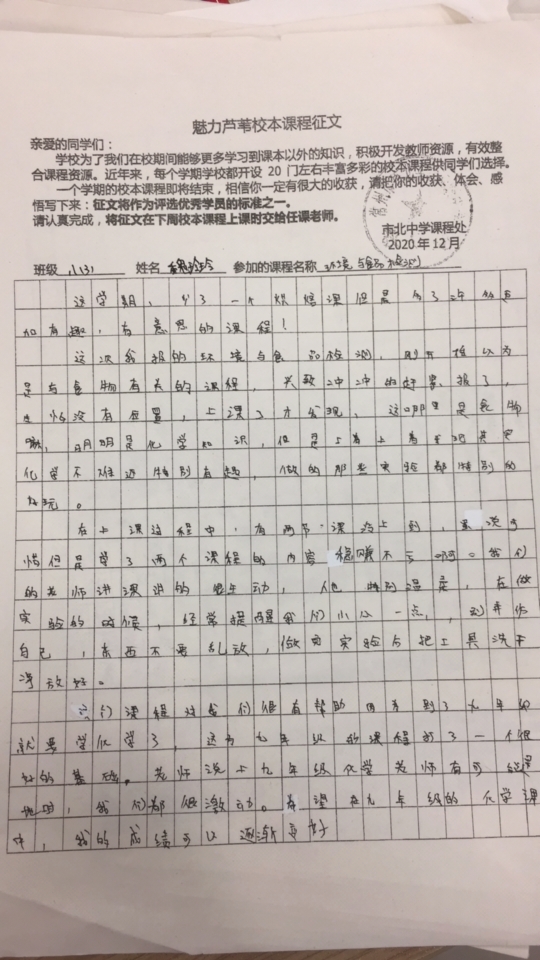 魅力芦苇校本课程征文
亲爱的同学们：
学校为了我们在校期间能够更多学习到课本以外的知识，积极开发教师资源，有效整
合课程资源。近年来，每个学期学校都开设 20 门左右丰富多彩的校本课程供同学们选择。
一个学期的校本课程即将结束，相信你一定有很大的收获，请把你的收获、体会、感
悟写下来：征文将作为评选优秀学员的标准之一。
请认真完成，将征文在下周校本课程上课时交给任课老师。
市北中学课程处
2020 年 12 月
班级 八(3) 姓名 参加的课程名称 环境与食品检测
这学期，少了一个烘焙课但是多了
加有趣，有意思的课程！
这次我报的环境与食品检测，刚开始以为
是与食物有关的课程，兴致冲冲的赶紧报了，
生怕没有位置，上课了才发现，这哪里是食物
啊，明明是化学知识，但是上着上着发现其实
化学不难还特别有趣，做的那些实验都特别的
好玩。
在上课过程中，有两节课没上到，虽然可
惜但是学了两个课程的内容稳赚不亏啊。我们
的老师讲课讲的很生动，人也特别温柔，在做
实验的时候，经常提醒我们小心一点，别弄伤
自己，东西不要乱放，做完实验后把工具洗干
净放好。
这门课程对我们很有帮助因为到了九年级
就要学化学了，这为九年级的课程打了一个很
好的基础。老师说上九年级化学老师有可能是
她时，我们都很激动。希望在九年级的化学课
中，我的成绩可以逐渐变好